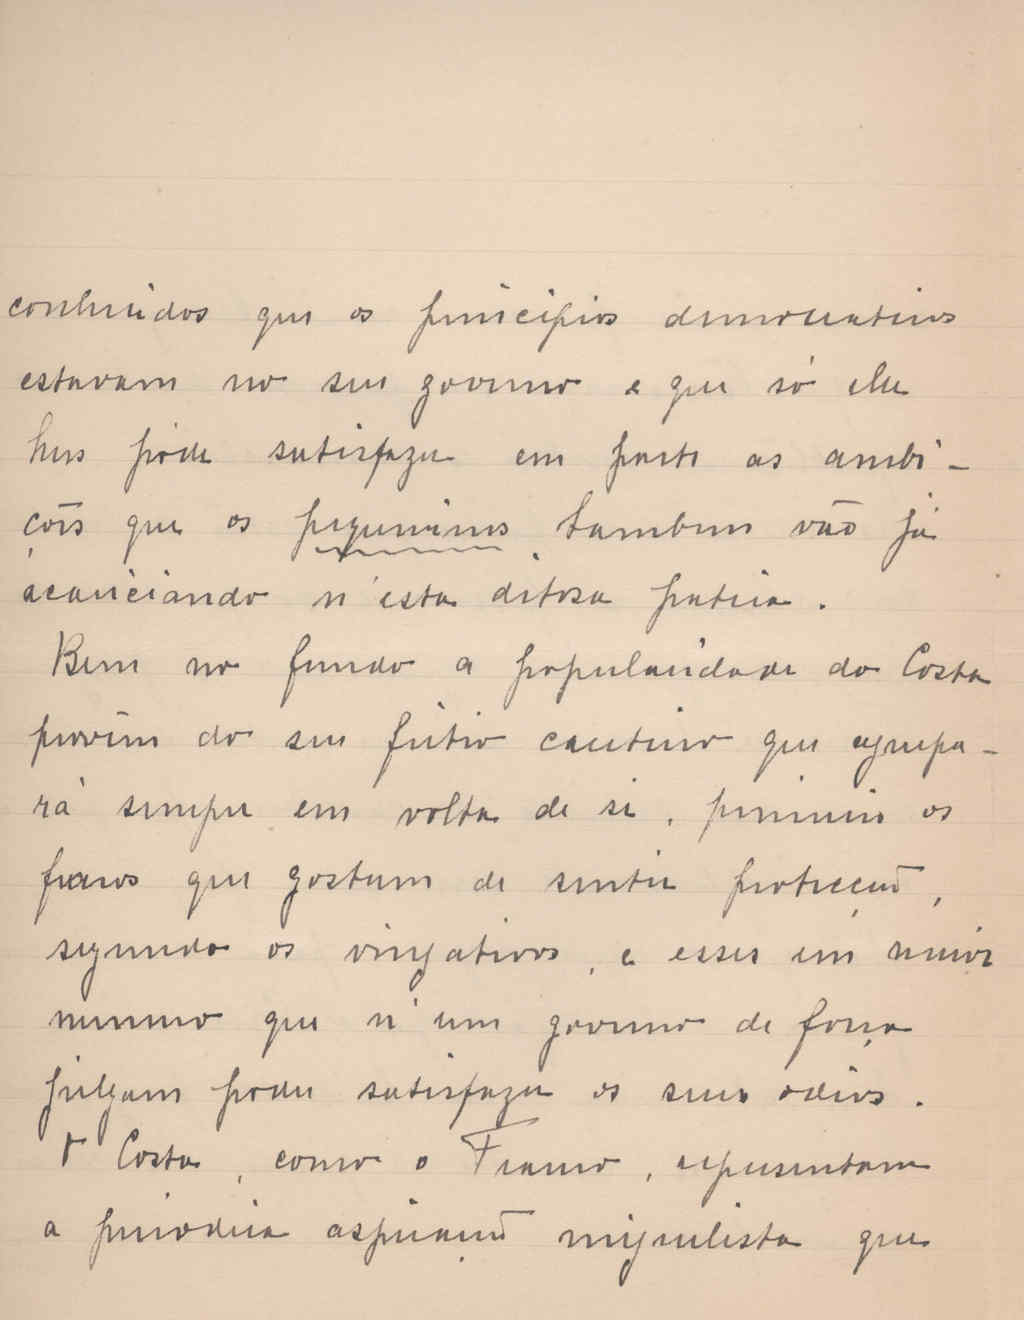 conhecidos que os principios democraticos
estavam no seu governo e que só elle
lhes póde satisfazer em parte as ambi-
ções que os pequeninos tambem vão já
acariciando n'esta ditosa patria.
Bem no fundo a popularidade do Costa
provêm do seu feitio caceteiro que agrupa-
rá sempre em volta de si, primeiro os
fracos que gostam de sentir protecção,
segundo os vingativos, e esses em maior
numero que n'um governo de força
julgam poder satisfazer os seus odios.
O Costa, como o Franco, representam
a periodica aspiração miguelista que